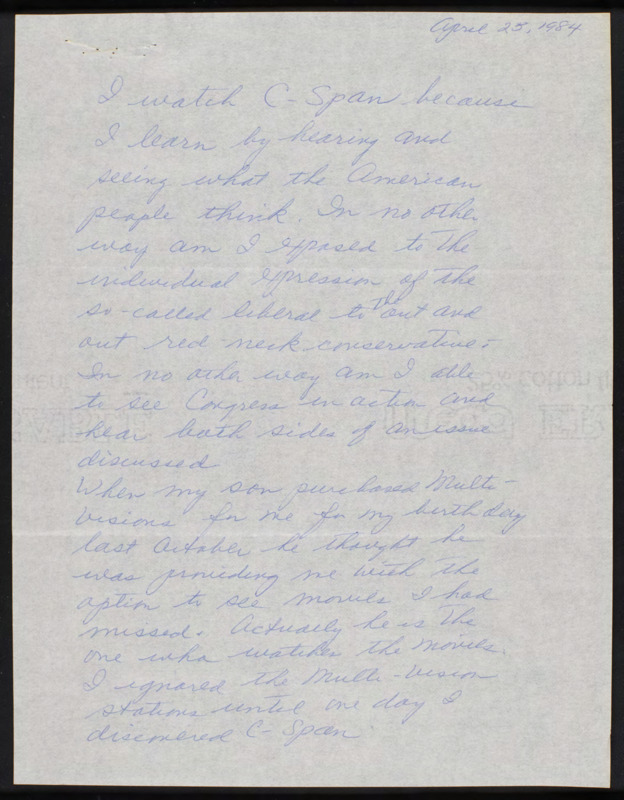 April 25, 1984
I watch C-Span because
I learn by hearing and
seeing what the American
people think. In no other
way am I exposed to the
individual expression of the
so-called liberal to the out and
out red-neck conservative.
In no other way am I able
to see Congress in action and
hear both sides of an issue
discussed
When my son purchased Multi-
visions for me for my birthday
last October he thought he
was providing me with the
option to see movies I had
missed. Actually he is the
one who watches the movies.
I ignored the Multi-vision
stations until one day I
discovered C-Span